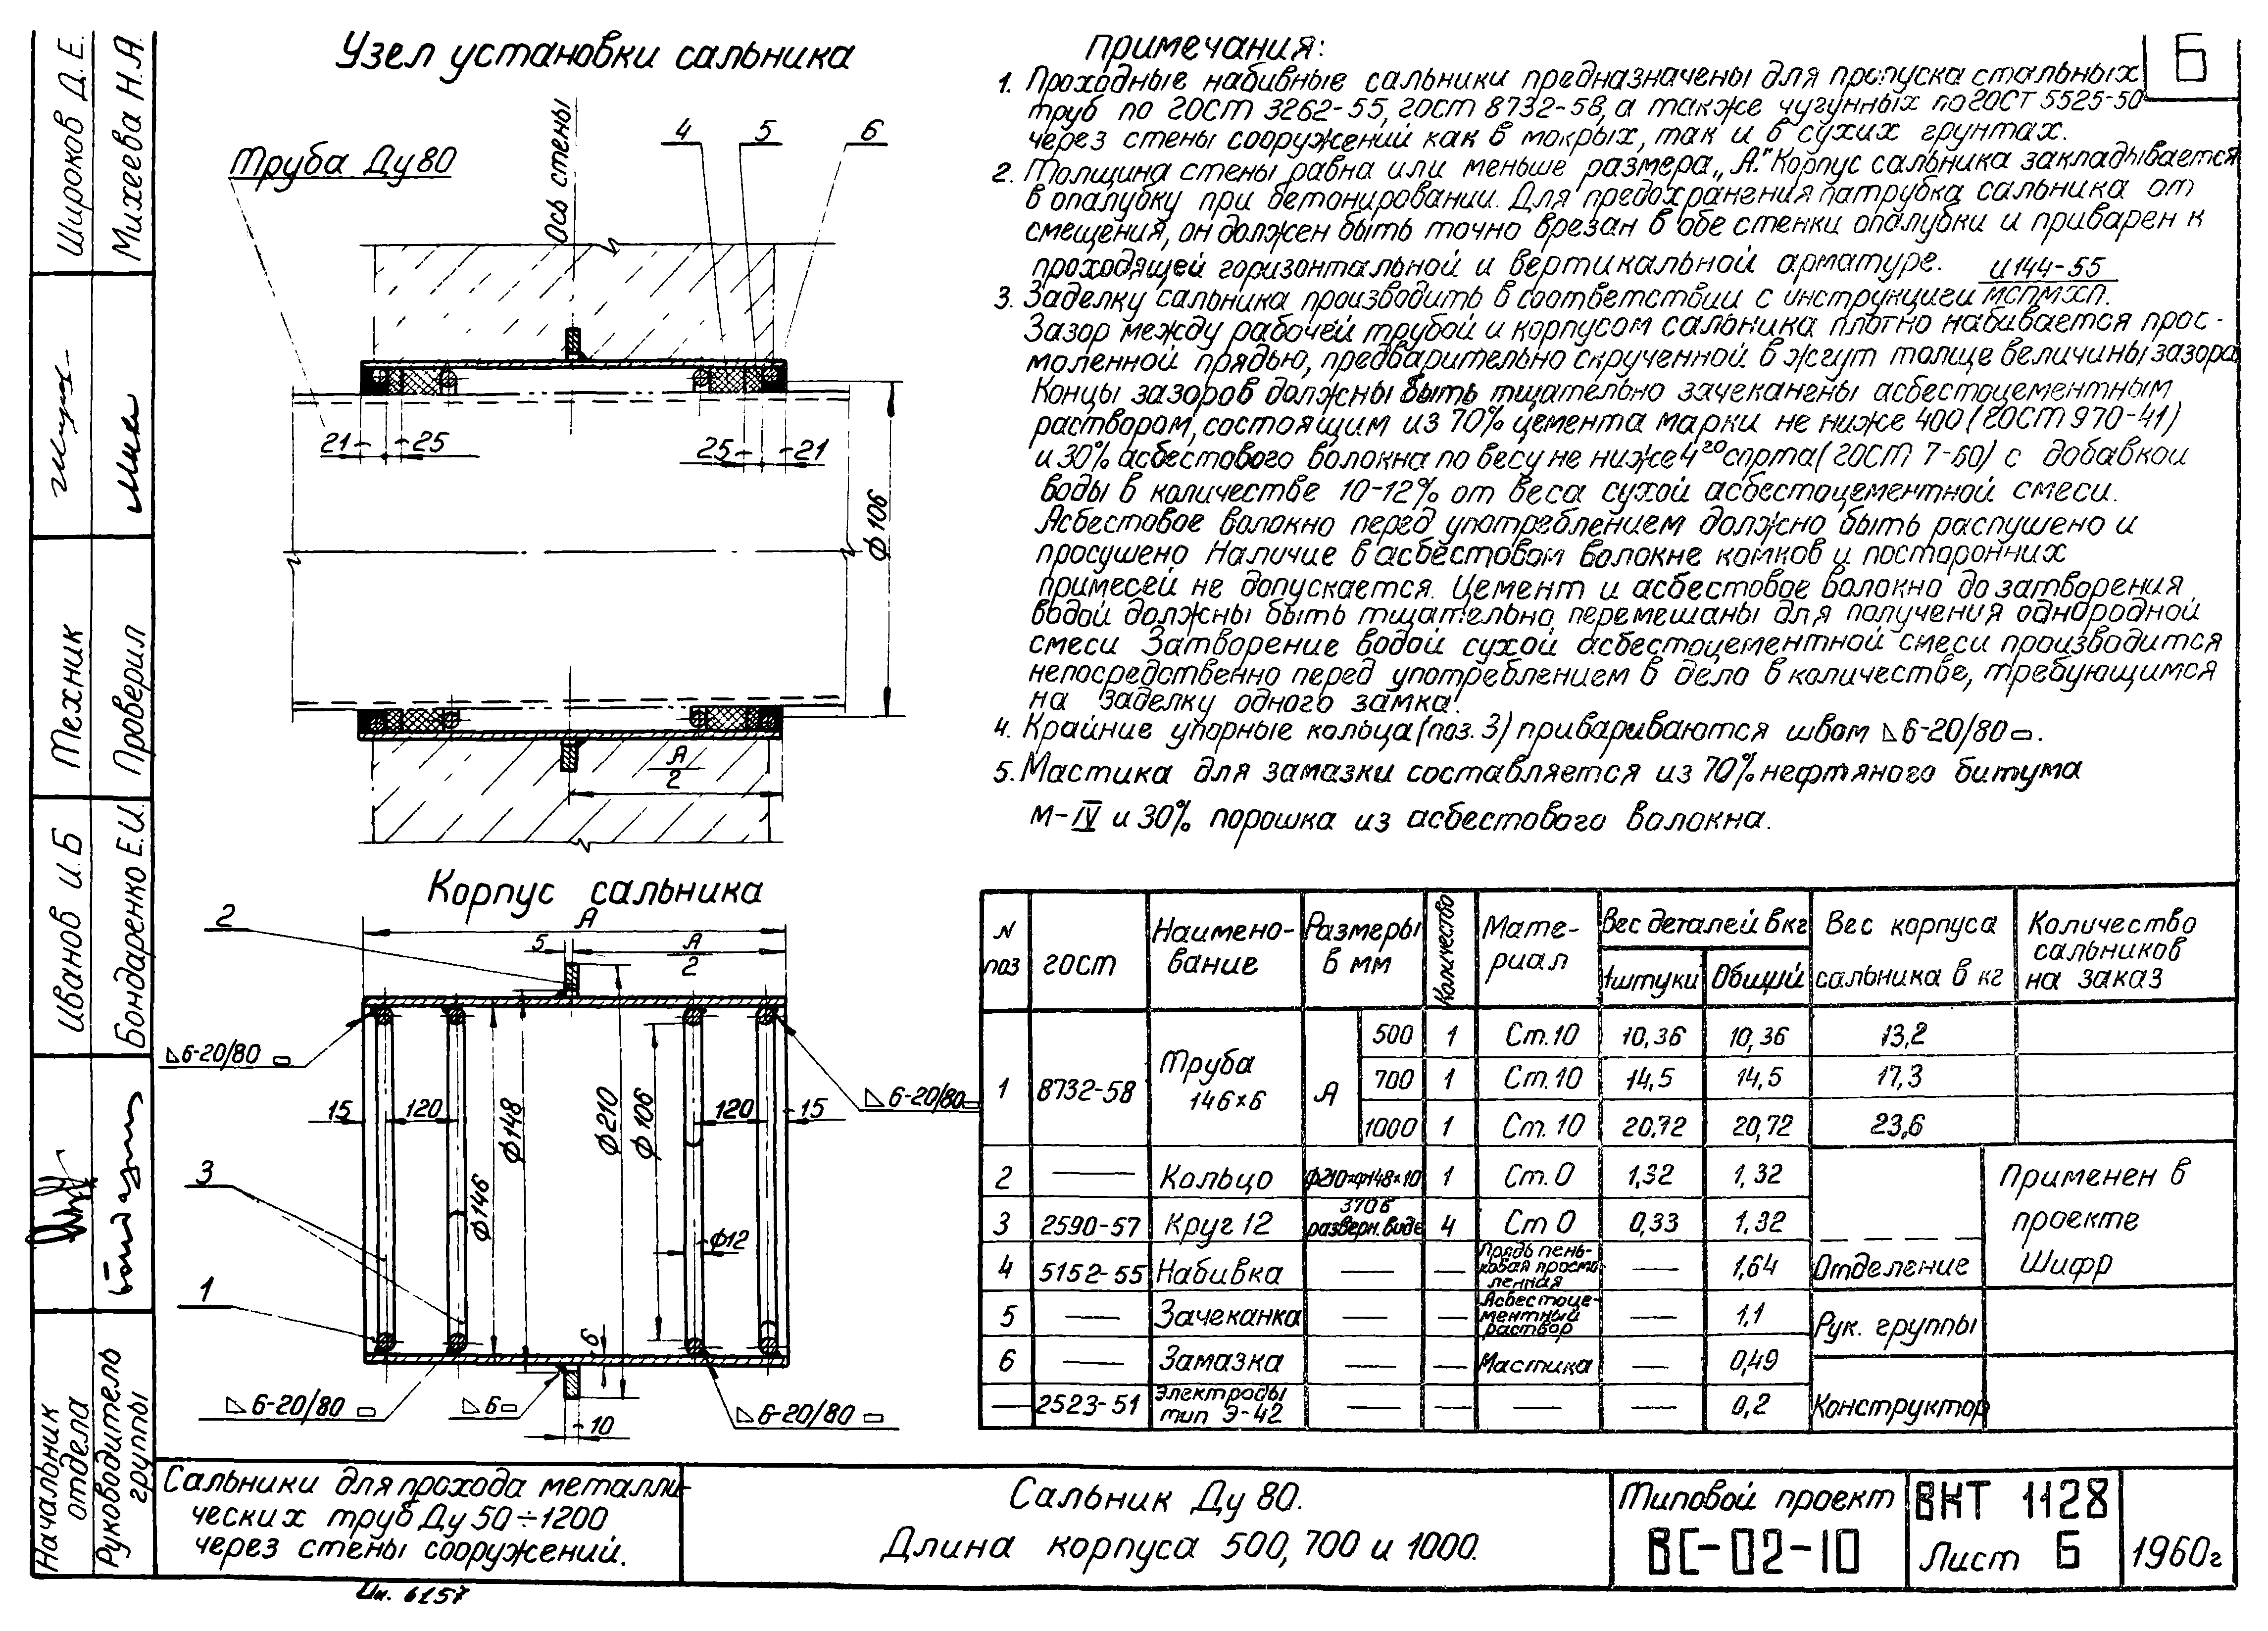 Узел установки сальника
Ось стены
4
5
6
Труба Ду80
21
25
25
21
ф106
А
2
Корпус сальника
2
А
5
А
2
6-20/80
15
120
ф148
ф146
ф210
ф106
120
15
6-20/80
3
ф12
1
6
6-20/80
6
6-20/80
10
Примечания:
Б
1. Проходные набивные сальники предназначены для пропуска стальных
труб по ГОСТ 3262-55, ГОСТ 8732-58, а также чугунных по ГОСТ 5525-50
через стены сооружений как в мокрых, так и в сухих грунтах.
2. Толщина стены равна или меньше размера „А." Корпус сальника закладывается
в опалубку при бетонировании. Для предохранения патрубка сальника от
смещения, он должен быть точно врезан в обе стенки опалубки и приварен к
проходящей горизонтальной и вертикальной арматуре.
3. Заделку сальника производить в соответствии с инструкциеи И144-55 МСПМХП.
Зазор между рабочей трубой и корпусом сальника плотно набивается прос-
моленной прядью, предварительно скрученной в жгут толще величины зазора
Концы зазоров должны быть тщательно зачеканены асбестоцементным
раствором, состоящим из 70% цемента марки не ниже 400 (ГОСТ 970-41)
и 30% асбестового волокна по весу не ниже 4го сорта (ГОСТ 7-60) с добавкой
воды в количестве 10-12% от веса сухой асбестоцементной смеси.
Асбестовое волокно перед употреблением должно быть распушено и
просушено Наличие в асбестовом волокне комков и посторонних
примесей не допускается. Цемент и асбестовое волокно до затворения
водой должны быть тщательно перемешаны для получения однородной
смеси Затворение водой сухой асбестоцементной смеси производится
непосредственно перед употреблением в дело в количестве, требующимся
на заделку одного замка.
4. Крайние упорные кольца (поз. 3) привариваются швом 6-20/80.
5. Мастика для замазки составляется из 70% нефтяного битума
М-IV и 30% порошка из асбестового волокна.
N поз ГОСТ Наимено-вание Размеры в мм Количество Мате-риал Вес деталей в кг 1штуки Общий Вес корпуса сальника в кг Количество сальников на заказ
1 8732-58 Труба 146×6 А 500 1 Ст.10 10,36 10,36 13,2
700 1 Ст.10 14,5 14,5 17,3
1000 1 Ст.10 20,72 20,72 23,6
2 — Кольцо ф210×ф148×10 1 Ст.0 1,32 1,32
3 2590-57 Круг 12 370 в разверн. виде 4 Ст 0 0,33 1.32
4 5152-55 Набивка — — Прядь пень-ковая просмо-ленная — 1,64
5 — Зачеканка — — Асбестоце-ментный раствор — 1,1
6 — Замазка — — Мастика — 0,49
— 2523-51 Электроды тип Э-42 — — — — 0,2
Отделение
Рук. группы
Конструктор
Применен в
проекте
Шифр
Широков Д.Е.
Михеева Н.А.
Техник
Проверил
Иванов И.Б
Бондаренко Е.И.
Начальник отдела
Руководитель группы
Сальники для прохода металли-
ческих труб Ду 50÷1200
через стены сооружений.
Сальник Ду 80.
Длина корпуса 500, 700 и 1000.
Типовой проект
ВС-02-10
ВКТ 1128
Лист Б
1960г
Ин. 6157